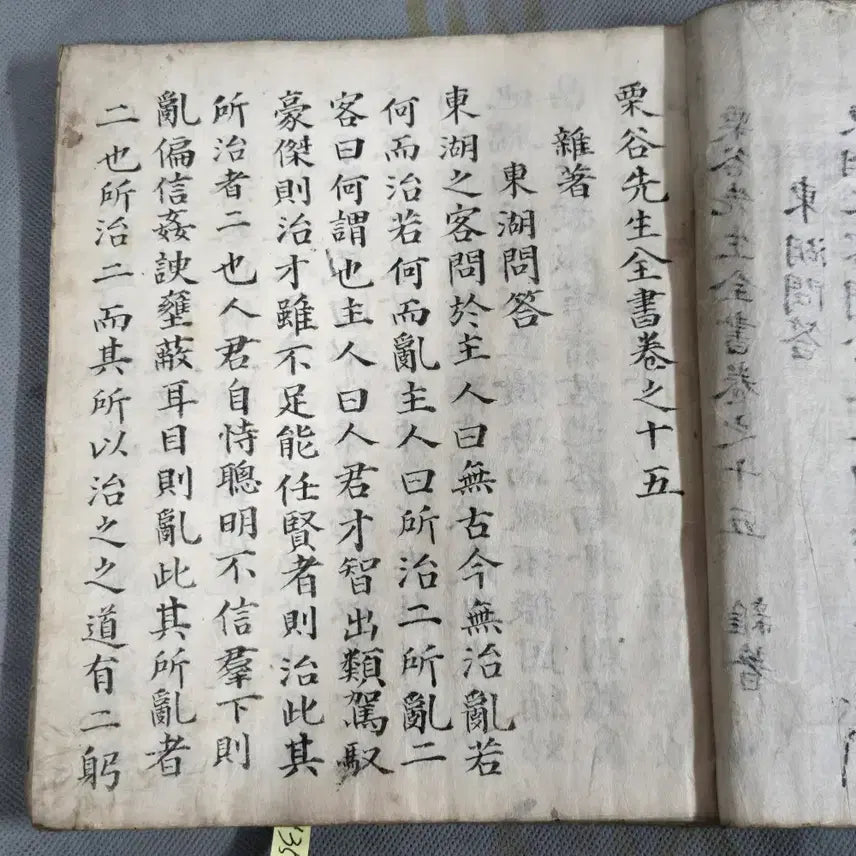 東湖問答
栗谷先生全書卷之十五 雜著
栗谷先生全書卷之十五
雜著
東湖問答
東湖之客問於主人曰無古今無治亂若
何而治若何而亂主人曰所治二所亂二
客曰何謂也主人曰人君才智出類駕馭
豪傑則治才雖不足能任賢者則治此其
所治者二也人君自恃聰明不信羣下則
亂偏信姦諛壅蔽耳目則亂此其所亂者
二也所治二而其所以治之之道有二躬